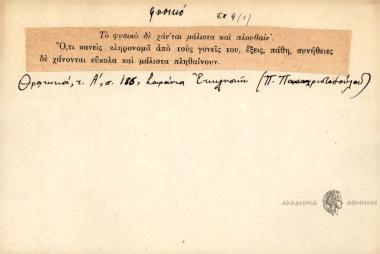 φυσικό
Τὸ φυσικὸ δὲ χάν'ται μάλιστα καὶ πλουθαίν'.
Ὅ,τι κανεὶς κληρονομᾷ ἀπὸ τοὺς γονεῖς του, ἕξεις, πάθη, συνήθειες
δὲ χάνονται εὔκολα καὶ μάλιστα πληθαίνουν.
Θρᾳκικά, τ. Α', σ. 186, Σαράντα Ἐκκλησιῶν (Π. Παπαχριστοδούλου)
ΑΚΑΔΗΜΙΑ ΑΘΗΝΩΝ